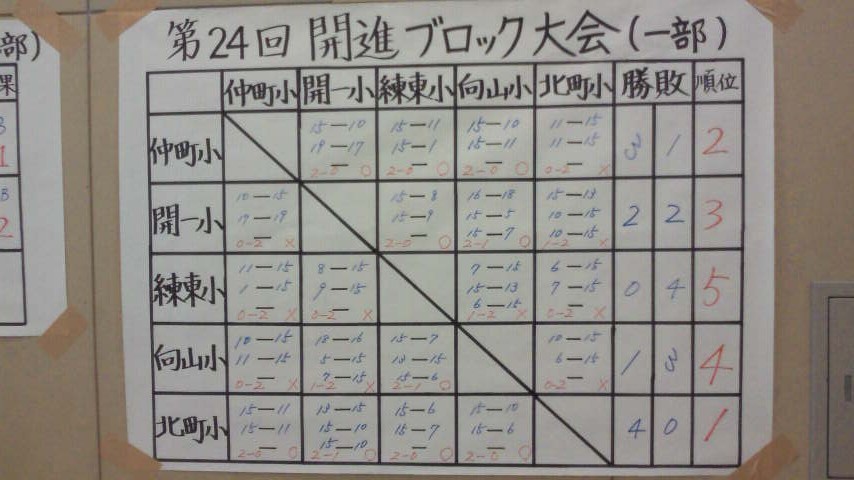 第24回 開進ブロック大会(一部)
仲町小 開一小 練東小 向山小 北町小 勝 敗 順位
仲町小
15—10 15—11 15—10 11—15
19—17 15—1 15—11 11—15
— — — —
2-0 ○ 2-0 ○ 2-0 ○ 0-2 ×
3 1 2
開一小
10—15 15—8 16—18 15—13
17—19 15—9 15—5 10—15
— — 15—7 10—15
0-2 × 2-0 ○ 2-1 ○ 1-2 ×
2 2 3
練東小
11—15 8—15 7—15 6—15
1—15 9—15 15—13 7—15
— — 6—15 —
0-2 × 0-2 × 1-2 × 0-2 ×
0 4 5
向山小
10—15 18—16 15—7 10—15
11—15 5—15 13—15 6—15
— 7—15 15—6 —
0-2 × 1-2 × 2-1 ○ 0-2 ×
1 3 4
北町小
15—11 13—15 15—6 15—10
15—11 15—10 15—7 15—6
— 15—10 — —
2-0 ○ 2-1 ○ 2-0 ○ 2-0 ○
4 0 1
部)
1
2